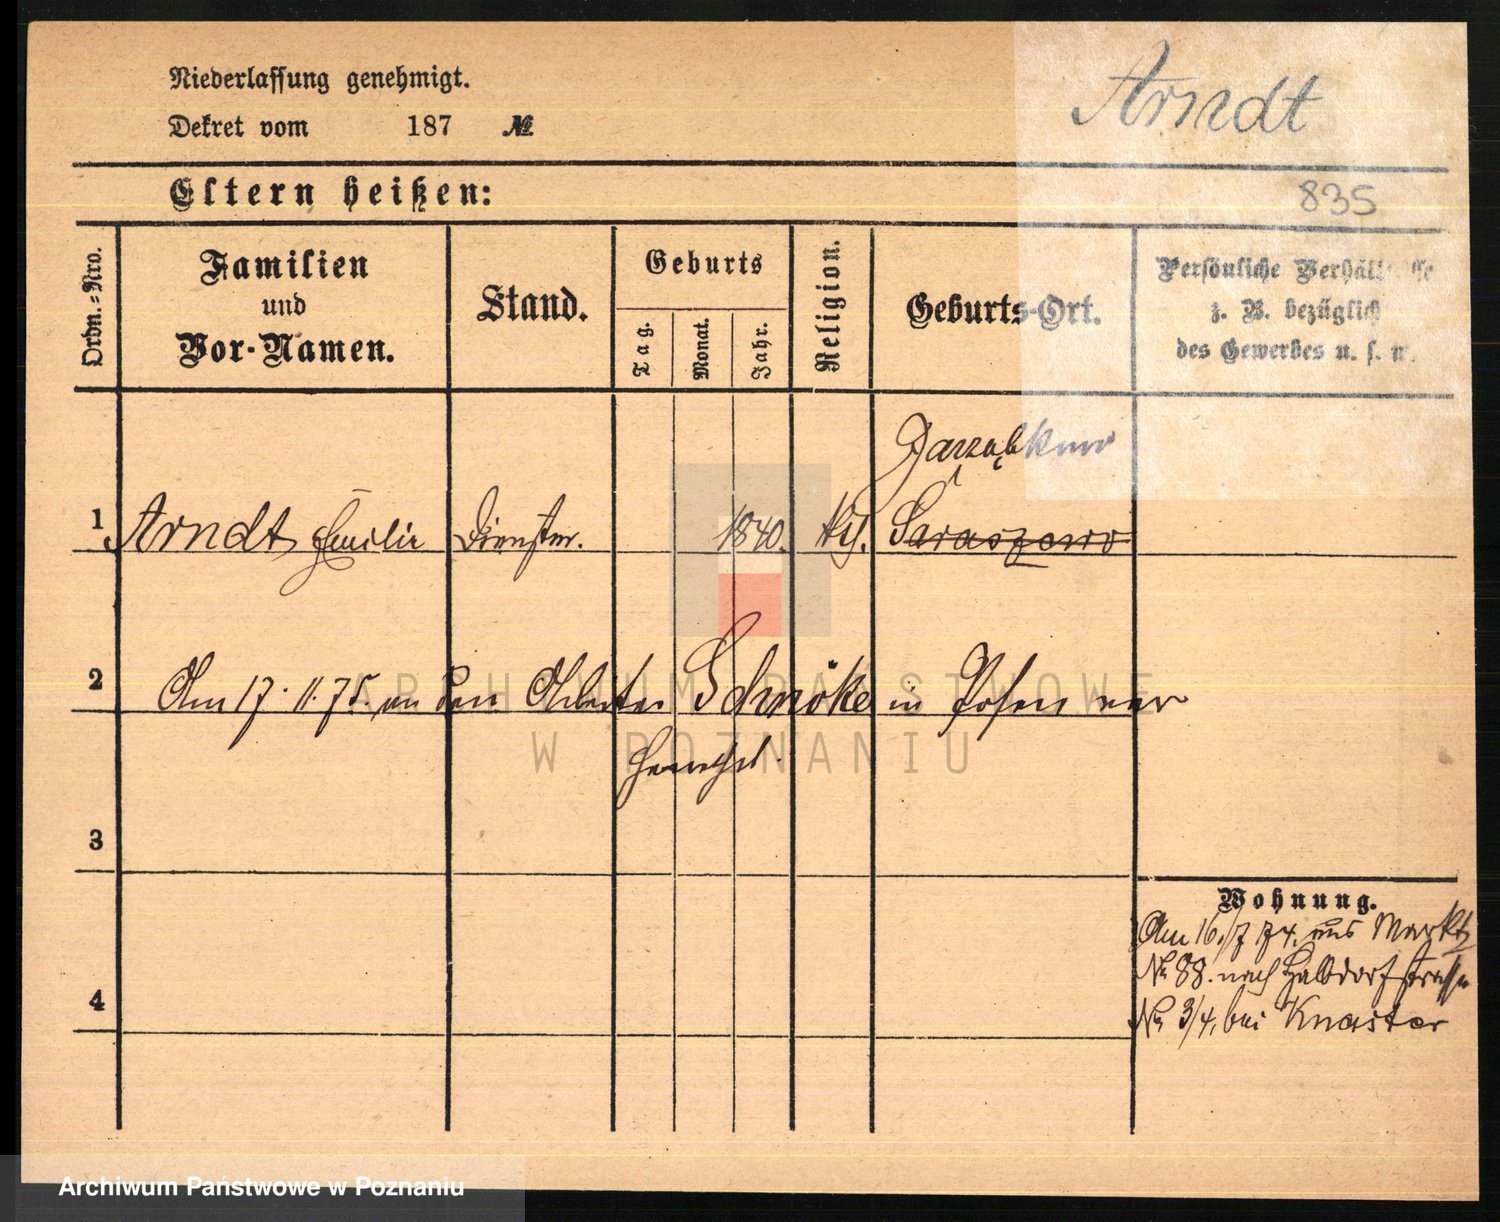 Niederlassung genehmigt.
Dekret vom 187 №
Arndt
Eltern heißen:
835
Ordn.-Nro.
Familien
und
Vor-Namen.
Stand.
Geburts
Tag.
Monat.
Jahr.
Religion.
Geburts-Ort.
Persönliche Verhältnisse
z. B. bezüglich
des Gewerbes u. s. w.
Jarząbkowo
1 Arndt Emilie Dienstm. 1840. kth. Saraszewo
2 Am 17. 11. 75. an den Arbeiter Schmöke in Posen ver
ARCHIWUM PAŃSTWOWE
W POZNANIU
3
Wohnung.
Am 16./7 74. aus Markt
№ 88. nach Halbdorfstrasse
4
№ 3/4, bei Knaster
Archiwum Państwowe w Poznaniu